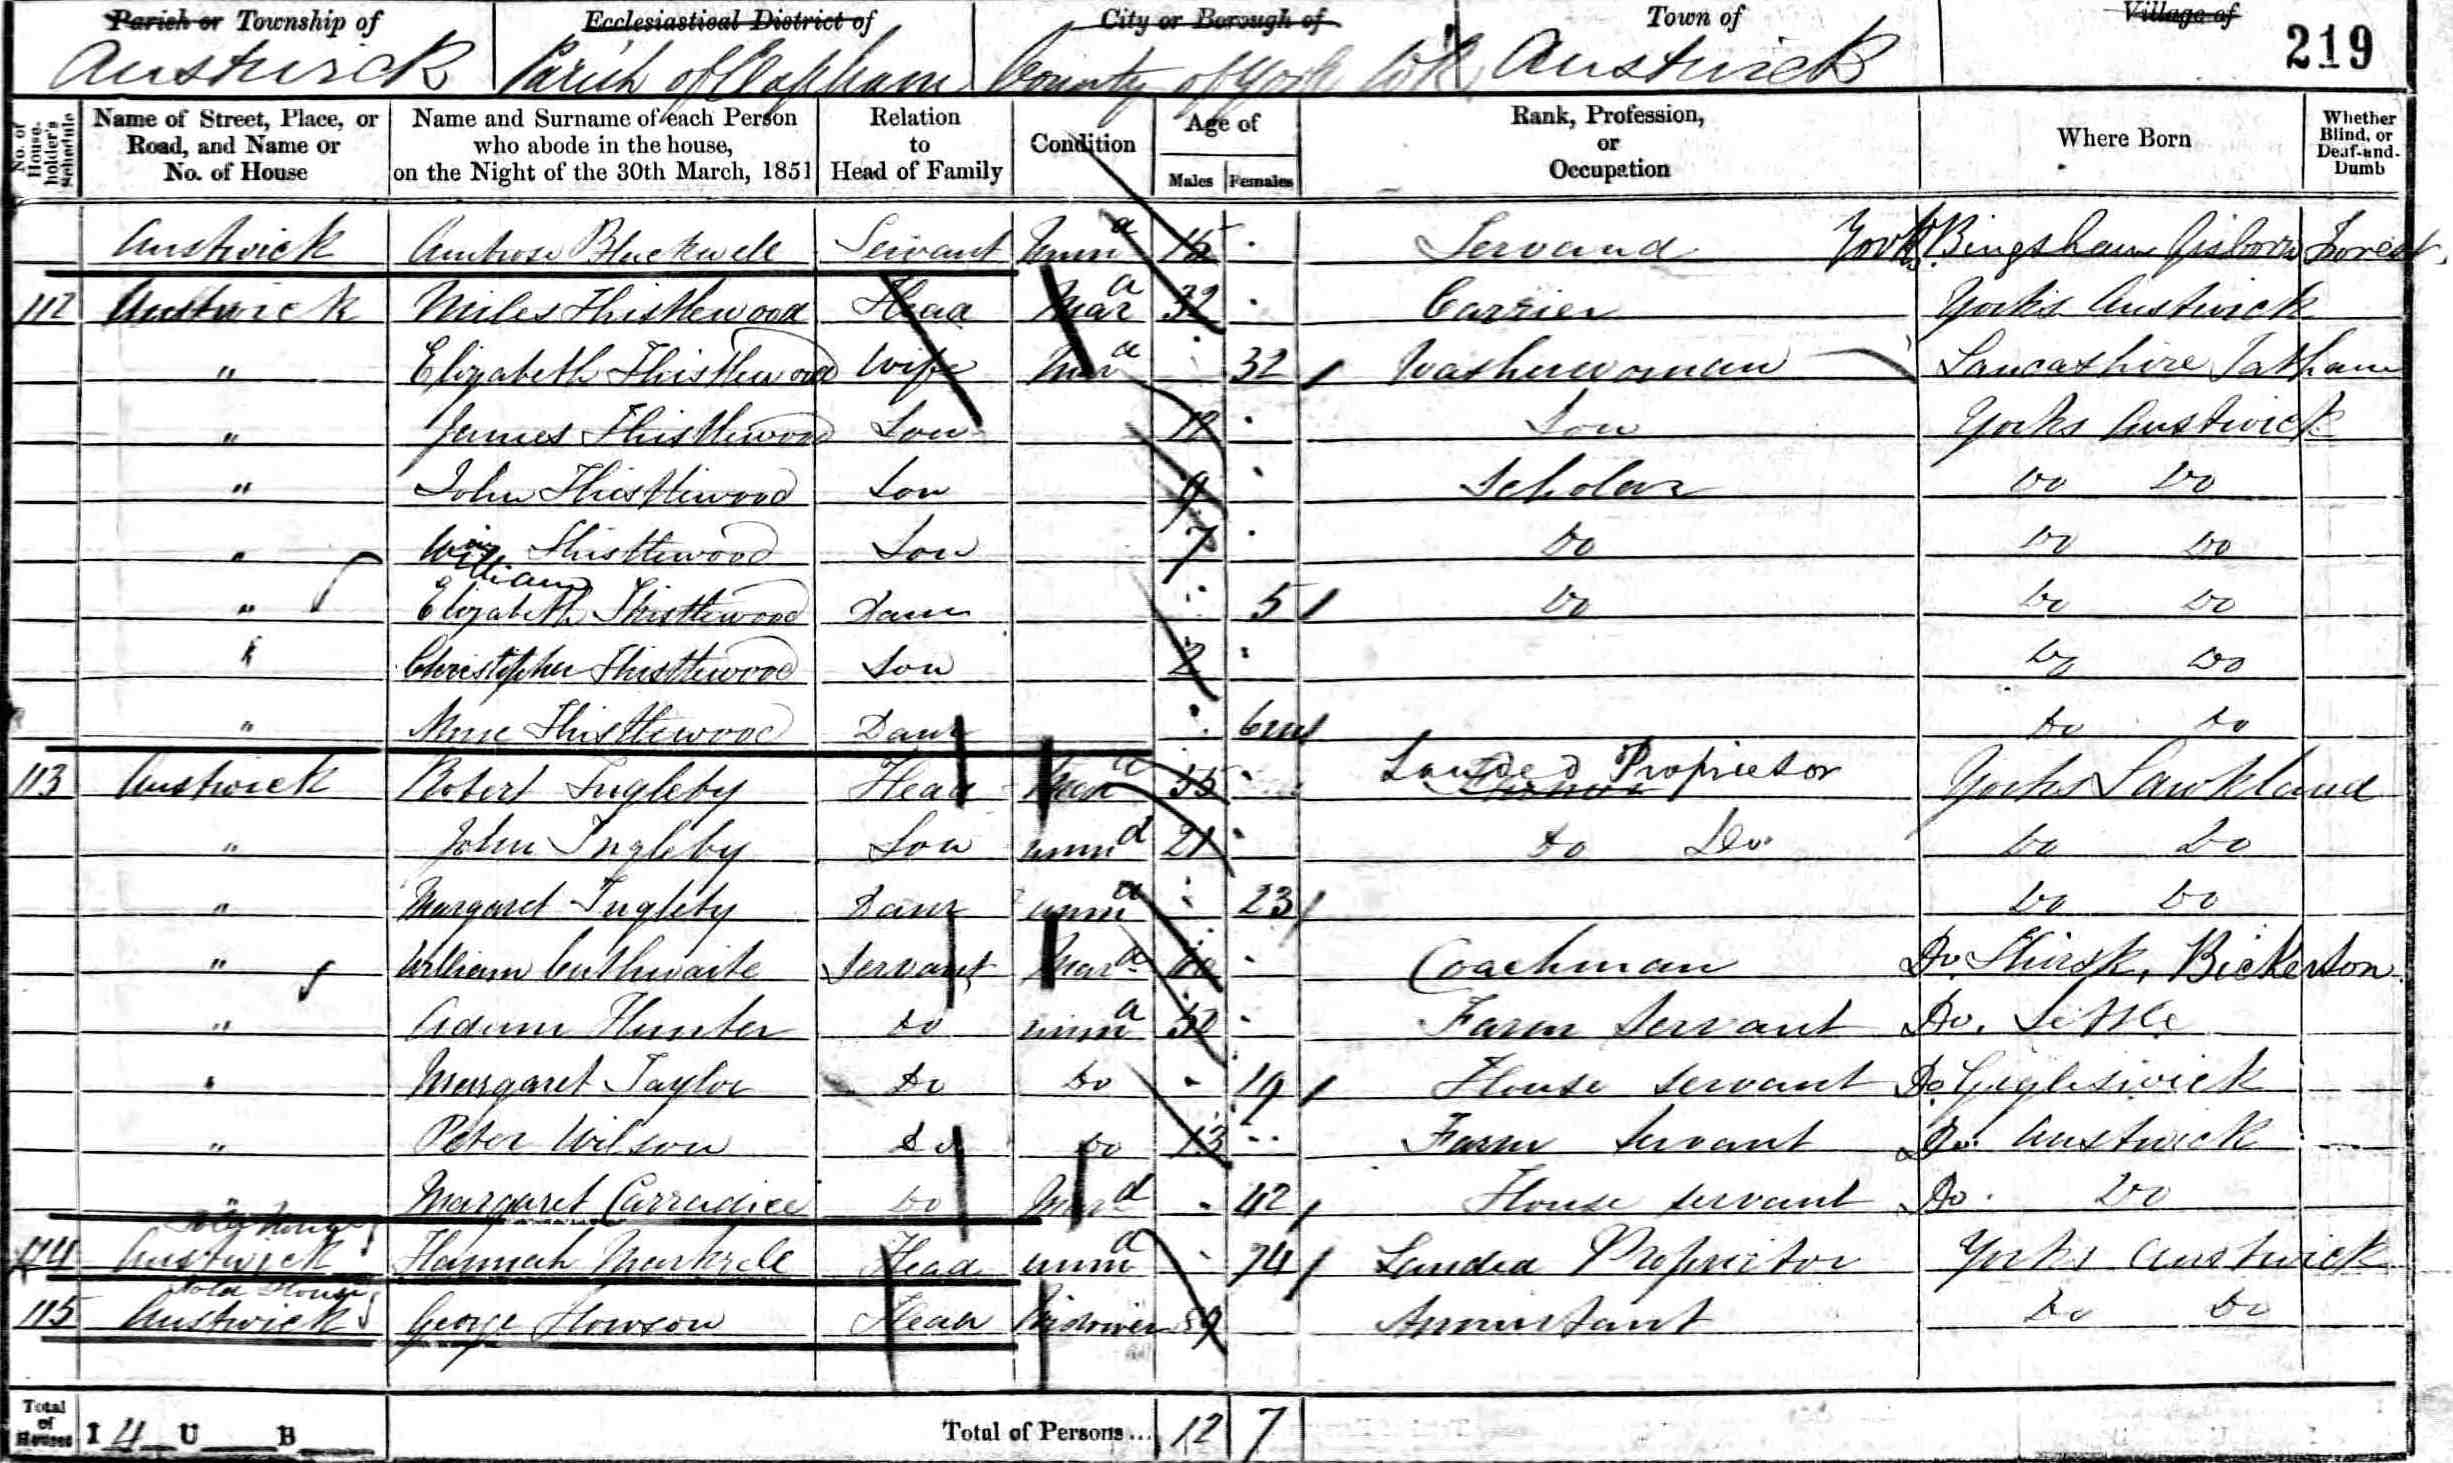 Parish or Township of Ecclesiastical District of City or Borough of Town of Village of
Austwick Parish of Clapham County of York Austwick 219
No. of House-holder's Schedule Name of Street, Place, or Road, and Name or No. of House Name and Surname of each Person who abode in the house, on the Night of the 30th March, 1851 Relation to Head of Family Condition Age of Males Females Rank, Profession, or Occupation Where Born Whether Blind, or Deaf-and-Dumb
Austwick Ambrose Blackwell Servant unm 15 Servand Yorks Forest
112 Austwick Miles Thistlewood Head Mar 32 Carrier Yorks Austwick
" Elizabeth Thistlewood Wife Mar 32 Washerwoman Lancashire Tatham
" James Thistlewood Son Son Yorks Austwick
" John Thistlewood Son 9 Scholar Do Do
" Wm William Thistlewood Son 7 Do Do Do
" Elizabeth Thistlewood Daur 5 Do Do Do
" Christopher Thistlewood Son 2 Do Do
" Anne Thistlewood Daur 6m Do Do
113 Austwick Robert Ingleby Head Mar 55 Landed Proprietor Yorks Lawkland
" John Ingleby Son unm 21 Do Do Do Do
" Margaret Ingleby Daur unm 23 Do Do
" William Cuthwaite Servant Mar 60 Coachman Do. Thirsk, Bickerton
" Adam Hunter Do unm 30 Farm Servant Do. Settle
" Margaret Taylor Do Do 19 House servant Do Gigleswick
" Peter Wilson Do Do 13 Farm Servant Do. Austwick
" Margaret Carradice Do Mar 42 House servant Do. Do
114 Austwick Hannah Head unm 74 Landed Proprietor Yorks Austwick
115 Austwick George Howson Head Widower 89 Annuitant Do Do
Total of Houses I 4 U B Total of Persons... 12 7